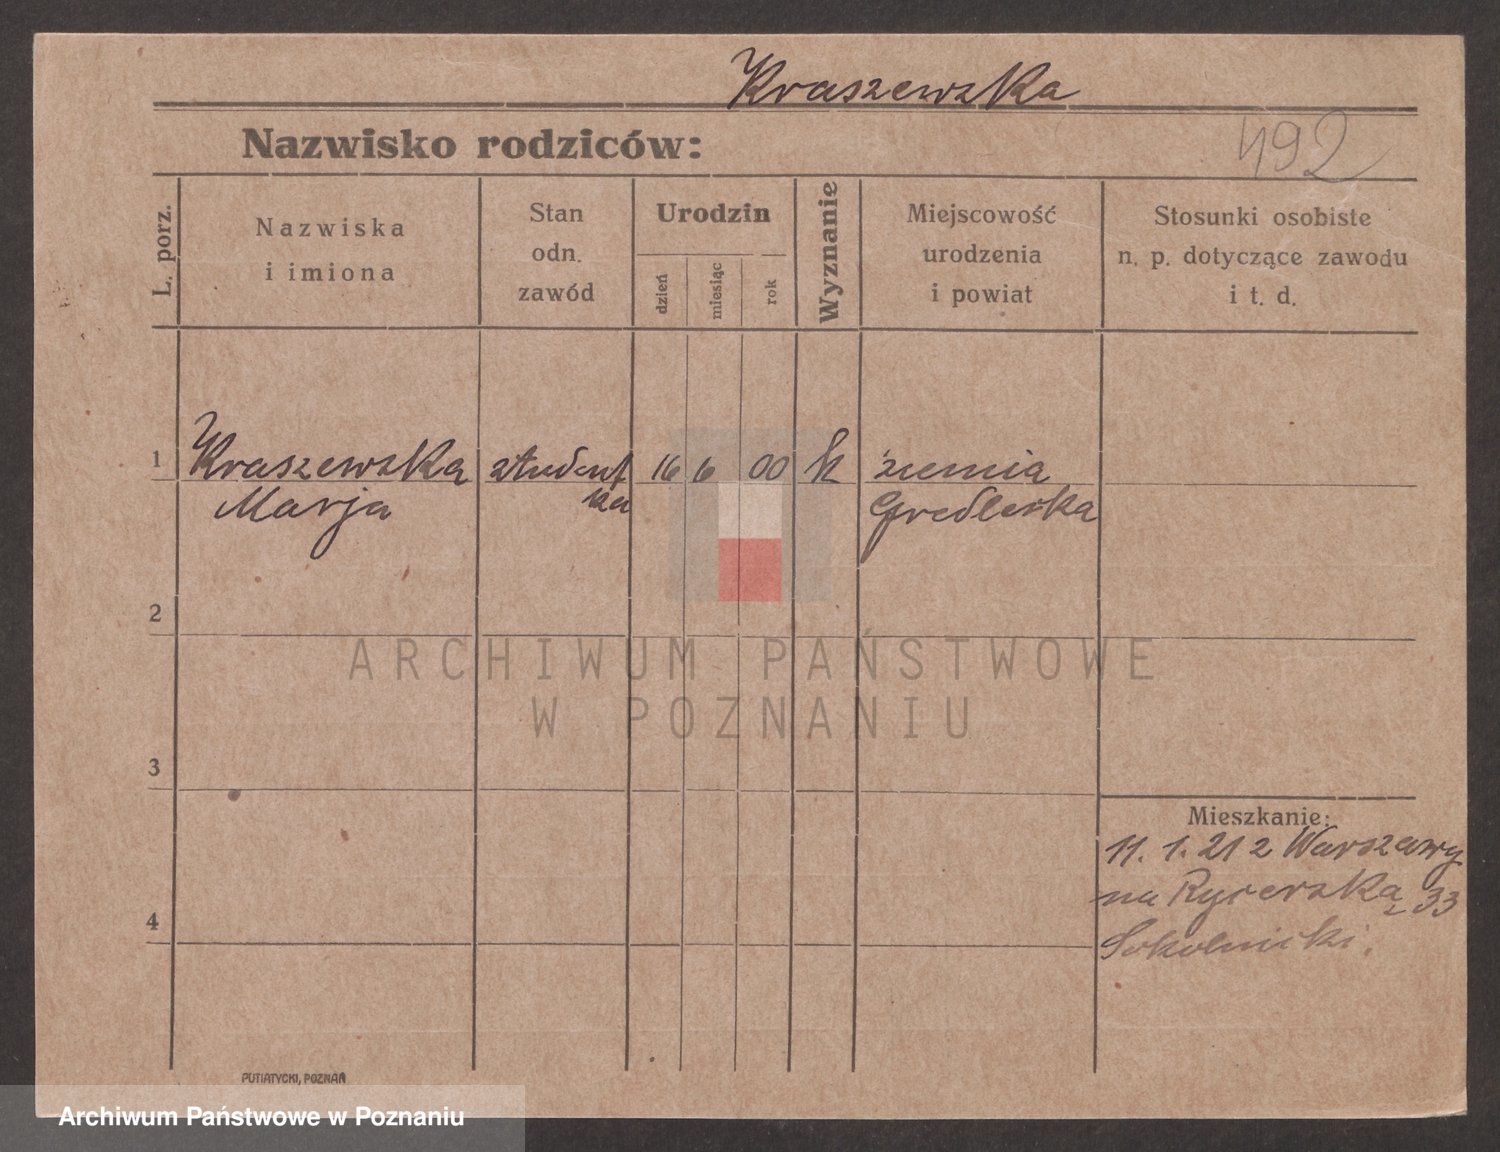 Kraszewska
Nazwisko rodziców:
492
L. porz.
Nazwiska
i imiona
Stan
odn.
zawód
Urodzin
dzień
miesiąc
rok
Wyznanie
Miejscowość
urodzenia
i powiat
Stosunki osobiste
n. p. dotyczące zawodu
i t. d.
1
Kraszewska
Marja
student
ka
16 6 00
k
ziemia
2
3
4
Mieszkanie:
11. 1. 21 z Warszawy
na Rycerska 33
Sokolnicki.
PUTIATYCKI, POZNAŃ
ARCHIWUM PAŃSTWOWE
W POZNANIU
Archiwum Państwowe w Poznaniu